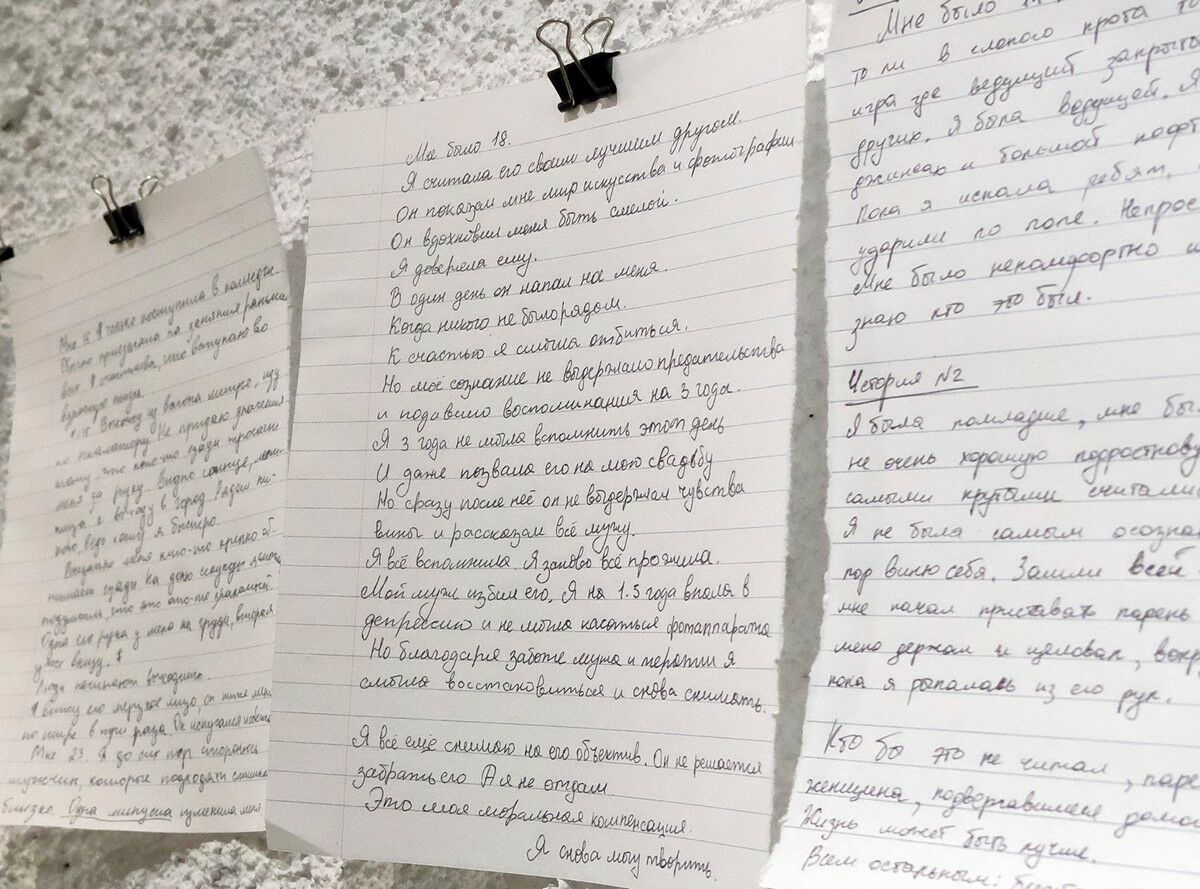 Мне 15. Я только поступила в колледж.
Обычно приезжала на занятия раньше
всех. Я счастлива, что вступаю во
взрослую жизнь.
Выхожу из вагона метро, иду
по эскалатору. Не придаю значения
тому, что кто-то сзади трогает
меня за руку. Видно солнце,
выходу в город. Рядом
я быстро.
Внезапно меня кто-то крепко об-
нимает сзади. На долю секунды я
подумала, что это кто-то знакомый.
Одна его рука у меня на груди, вторая
уже внизу.
Люди начинают выходить.
Я вижу его мерзкое лицо, он
по мире в три раза. Он испугался и
Мне 23. Я до сих пор сторонюсь
мужчин, которые подходят слишком
близко. Одна минута изменила меня
Мне было 18.
Я считала его своим лучшим другом.
Он показал мне мир искусства и фотографии
Он вдохновил меня быть смелой.
Я доверяла ему.
В один день он напал на меня.
Когда никого не было рядом.
К счастью я смогла отбиться.
Но моё сознание не выдержало предательства
и подавило воспоминания на 3 года.
Я 3 года не могла вспомнить этот день
И даже позвала его на мою свадьбу
Но сразу после неё он не выдержал чувства
вины и рассказал всё мужу.
Я всё вспомнила. Я заново всё прожила.
Мой муж избил его. Я на 1.5 года впала в
депрессию и не могла касаться фотоаппарата
Но благодаря заботе мужа и терапии я
смогла восстановиться и снова снимать.
Я всё ещё снимаю на его объектив. Он не решается
забрать его А я не отдам
Это моя моральная компенсация.
Я снова могу творить.
Мне было
то ли в слепого крота то
игра где ведущий закрыты
других. Я была ведущей. Я
джинсах и большой кофт
Пока я искала ребят,
ударили по попе. Непрос
Мне было некомфортно и
знаю кто это был.
История №2
Я была помладше, мне бы
не очень хорошую подростков
самыми крутыми считали
Я не была самым осозна
под виню себя. Зашли всей
мне начал приставать парень
меня держал и целовал, вопр
пока я рыпалась из его рук.
Кто бы это не читал, паре
женщина, подвергавшиеся дома
Жизнь может быть лучше.
Всем остальным: